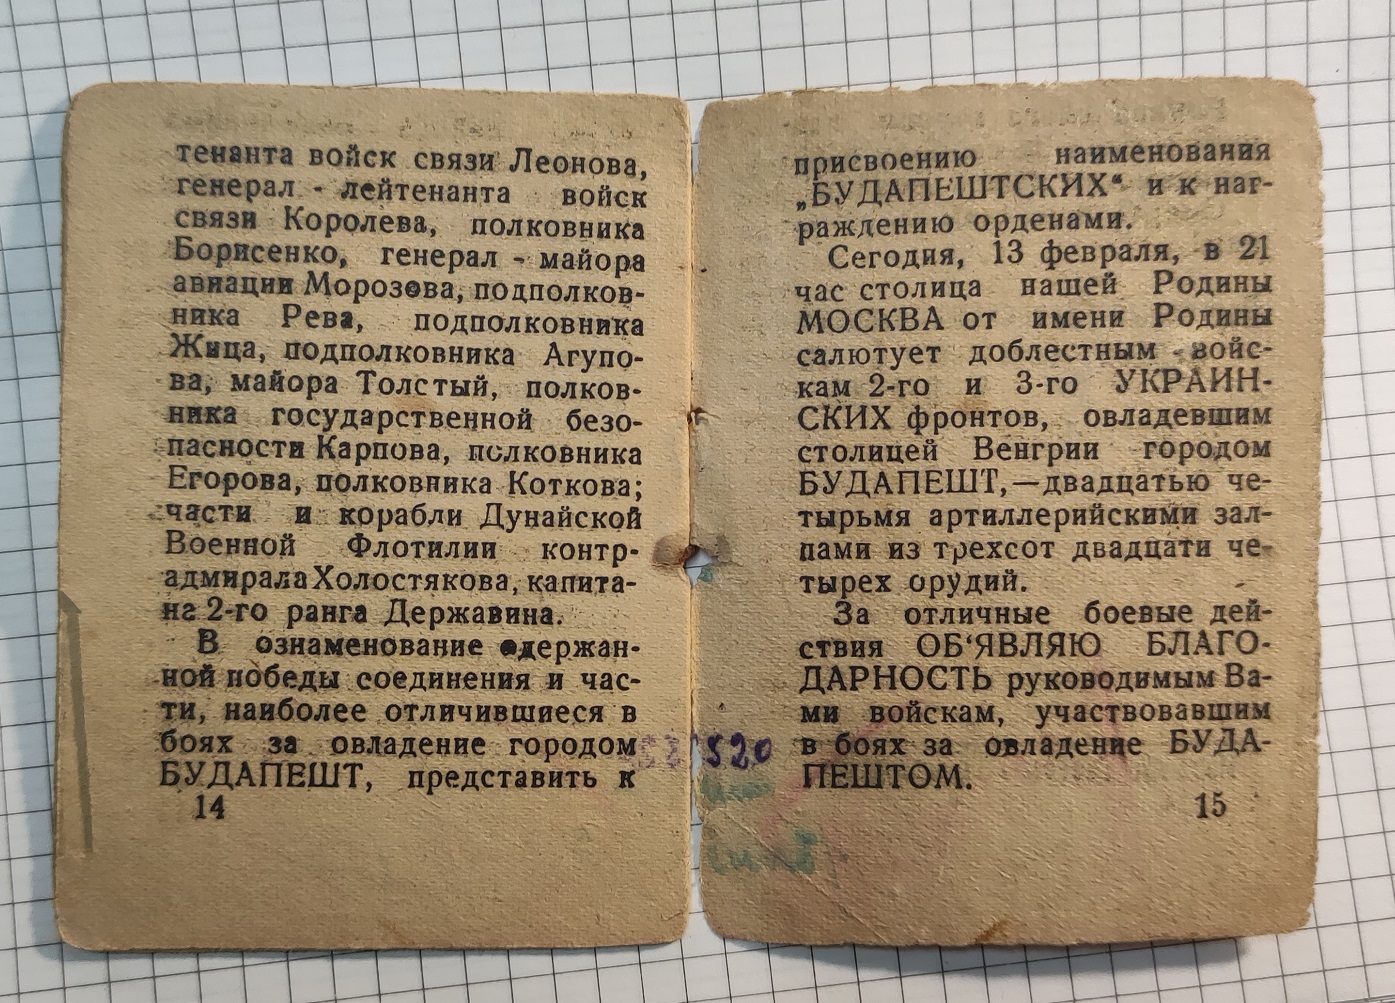 тенанта войск связи Леонова,
генерал - лейтенанта войск
связи Королева, полковника
Борисенко, генерал - майора
авиации Морозова, подполков-
ника Рева, подполковника
Жица, подполковника Агупо-
ва, майора Толстый, полков-
ника государственной безо-
пасности Карпова, полковника
Егорова, полковника Коткова;
части и корабли Дунайской
Военной Флотилии контр-
адмирала Холостякова, капита-
на 2-го ранга Державина.
В ознаменование одержан-
ной победы соединения и час-
ти, наиболее отличившиеся в
боях за овладение городом
БУДАПЕШТ, представить к
14
присвоению наименования
„БУДАПЕШТСКИХ“ и к наг-
раждению орденами.
Сегодня, 13 февраля, в 21
час столица нашей Родины
МОСКВА от имени Родины
салютует доблестным войс-
кам 2-го и 3-го УКРАИН-
СКИХ фронтов, овладевшим
столицей Венгрии городом
БУДАПЕШТ,—двадцатью че-
тырьмя артиллерийскими зал-
пами из трехсот двадцати че-
тырех орудий.
За отличные боевые дей-
ствия ОБ‘ЯВЛЯЮ БЛАГО-
ДАРНОСТЬ руководимым Ва-
ми войскам, участвовавшим
в боях за овладение БУДА-
ПЕШТОМ.
15
520